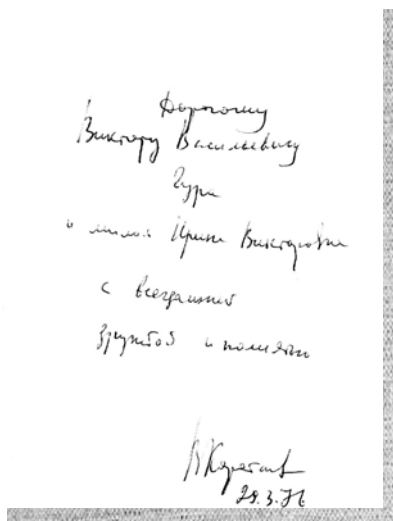 Дорогому
Виктору Васильевичу
Гура
и милой Ирине Викторовне
с всегдашней
дружбой и памятью
В Коротаев
29.3.76